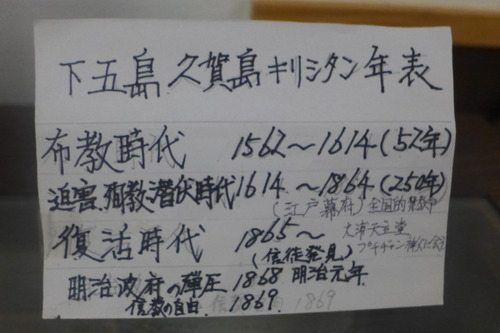 下五島 久賀島キリシタン年表
布教時代 1562～1614(52年)
迫害、殉教、潜伏時代 1614～1864(250年)
(江戸幕府) 全国的禁教令
復活時代 1865～ 大浦天主堂
(信徒発見) プチジャン神父に
明治政府の弾圧 1868 明治元年
信教の自由 1869 1869